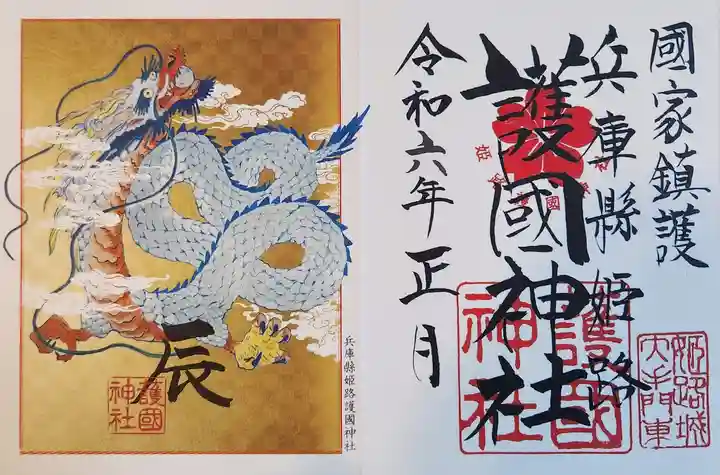 國家鎮護
兵庫縣姫路
護國神社
令和六年正月
護國
神社
姫路城
大手門東
辰
護國
神社
兵庫縣姫路護國神社